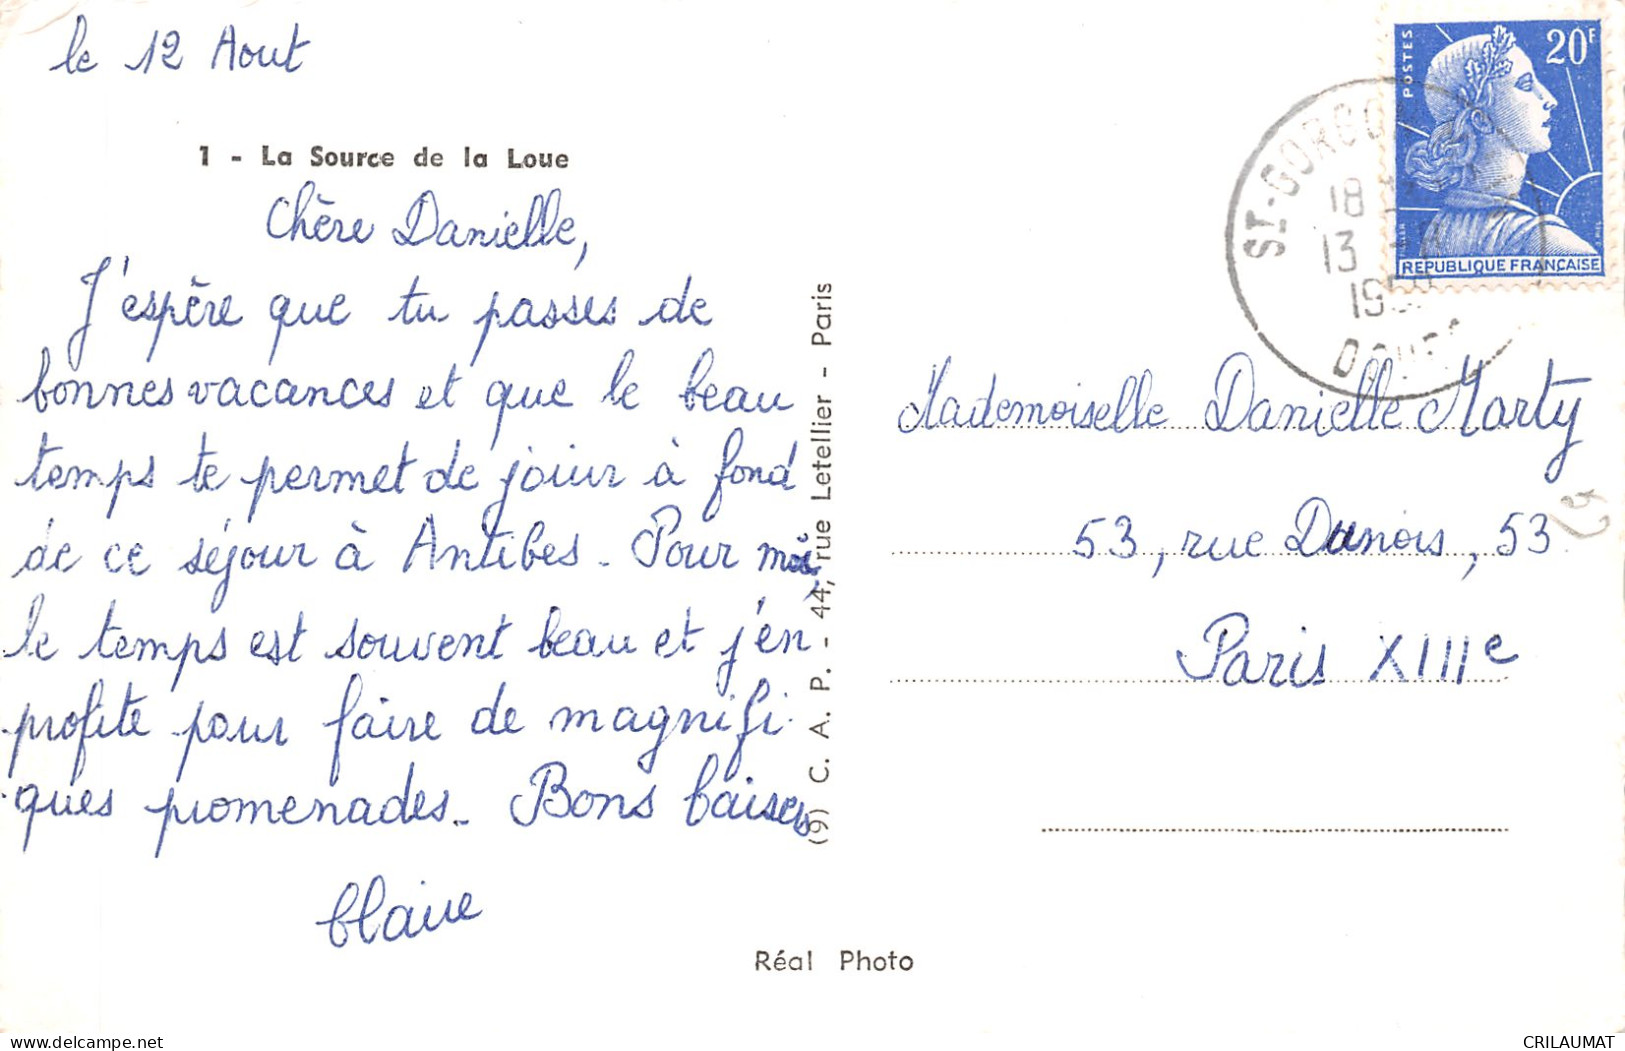 le 12 Aout
1 - La Source de la Loue
Chère Danielle,
J'espère que tu passes de
bonnes vacances et que le beau
temps te permet de jouir à fond
de ce séjour à Antibes. Pour moi,
le temps est souvent beau et j'en
profite pour faire de magnifi-
ques promenades. Bons baisers
Claire
(9) C. A. P. - 44, rue Letellier - Paris
Réal Photo
POSTES
20F
REPUBLIQUE FRANÇAISE
ST-GORGO
18
13
DOUBS
Mademoiselle Danielle Marty
53, rue Dunois, 53
Paris XIIIe
CRILAUMAT